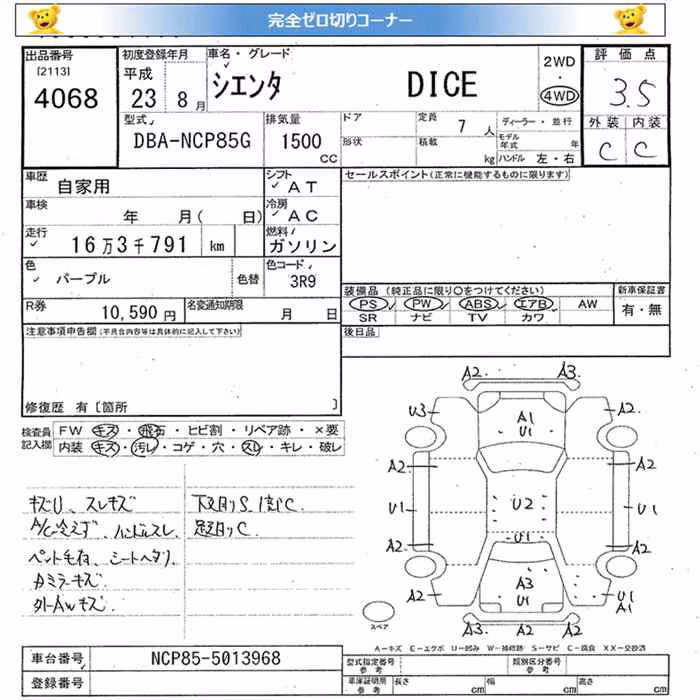 完全ゼロ切りコーナー
出品番号
[2113]
4068
初度登録年月
平成
23 8月
車名・グレード
シエンタ DICE
2WD
・
4WD
評価点
3.5
外装 内装
C C
型式
DBA-NCP85G
排気量
1500
CC
ドア
形状
定員
7 人
積載
kg
ディーラー・並行
モデル年式 年
ハンドル 左・右
車歴
自家用
シフト
AT
車検
年 月( 日)
冷房
AC
走行
16万3千791 km
燃料
ガソリン
色
パープル
色替
色コード
3R9
R券
10,590円
名変通知期限
月 日
セールスポイント(正常に機能するものに限ります)
装備品(純正品に限り○をつけてください)
PS PW ABS エアB AW
SR ナビ TV カワ
新車保証書
有・無
後日品
注意事項申告欄(不具合内容等は具体的に記入して下さい)
修復歴 有〔箇所 〕
検査員記入欄
FW キズ・飛石・ヒビ割・リペア跡・×要
内装 キズ・汚レ・コゲ・穴・スレ・キレ・破レ
キズU、スレキズ
A/C冷えず、ハンドルスレ
ペット毛有、シートヘタリ
カミラーキズ
外AWキズ
下廻りS
足廻りC
A2 A3
U3 A1 A2
U1
A2 A2
U1 U2 U1
U1
A2 A2
A3
A2 U1 U1
A1
A3 A2 A2
スペア
A-キズ E-エクボ U-凹み W-補修跡 S-サビ C-腐食 XX-交換済
車台番号
NCP85-5013968
登録番号
型式指定番号
参考
類別区分番号
参考
車庫証明用
参考
長さ cm
幅 cm
高さ cm